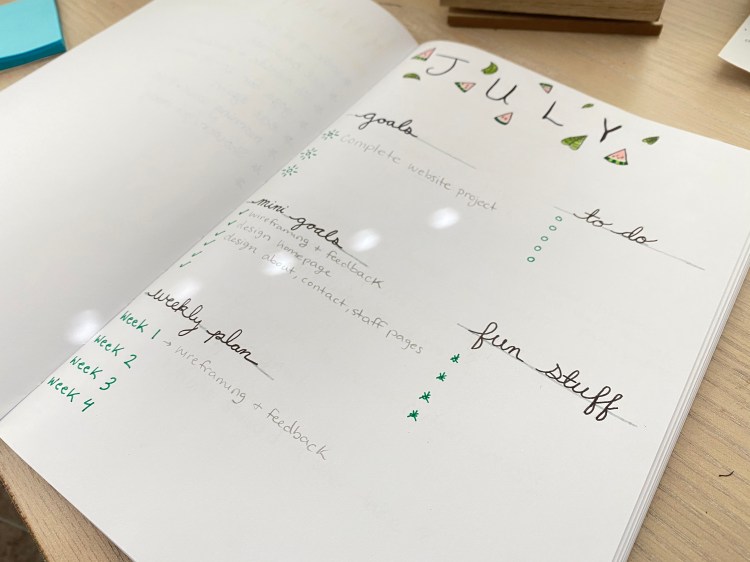 JULY
goals
complete website project
mini goals
wireframing + feedback
design homepage
design about, contact, staff pages
weekly plan
Week 1 → wireframing + feedback
Week 2
Week 3
Week 4
to do
fun stuff